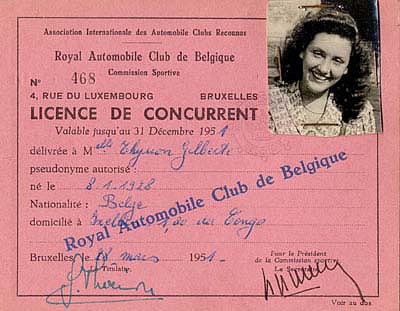 Association Internationale des Automobile Clubs Reconnus
Royal Automobile Club de Belgique
Commission Sportive
N° 468
4, RUE DU LUXEMBOURG BRUXELLES
LICENCE DE CONCURRENT
Valable jusqu'au 31 Décembre 1951
délivrée à Mlle Thyrion Gilberte
pseudonyme autorisé :
né le 8-1-1928
Nationalité : Belge
domicilié à Ixelles
Royal Automobile Club de Belgique
Bruxelles, le mars 1951.
Titulaire,
Pour le Président
de la Commission sportive
Le Secrétaire
Voir au dos